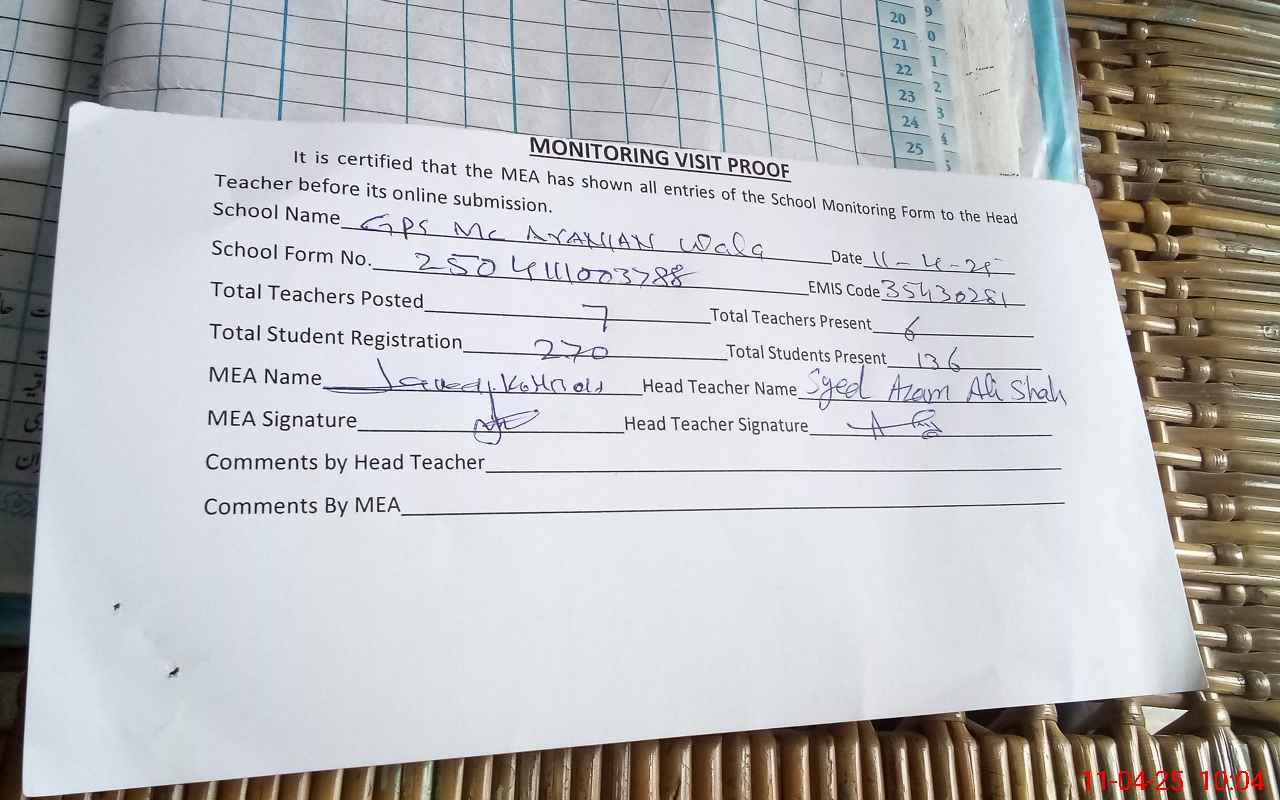 20
21
22
23
24
25
9
0
1
2
3
4
MONITORING VISIT PROOF
It is certified that the MEA has shown all entries of the School Monitoring Form to the Head
Teacher before its online submission.
School Name GPS MC ARAIAN Wala Date 11-4-25
School Form No. 2504111003788 EMIS Code 35430281
Total Teachers Posted 7 Total Teachers Present 6
Total Student Registration 270 Total Students Present 136
MEA Name Head Teacher Name Syed Azam Ali Shah
MEA Signature Head Teacher Signature
Comments by Head Teacher
Comments By MEA
11-04-25 10:04